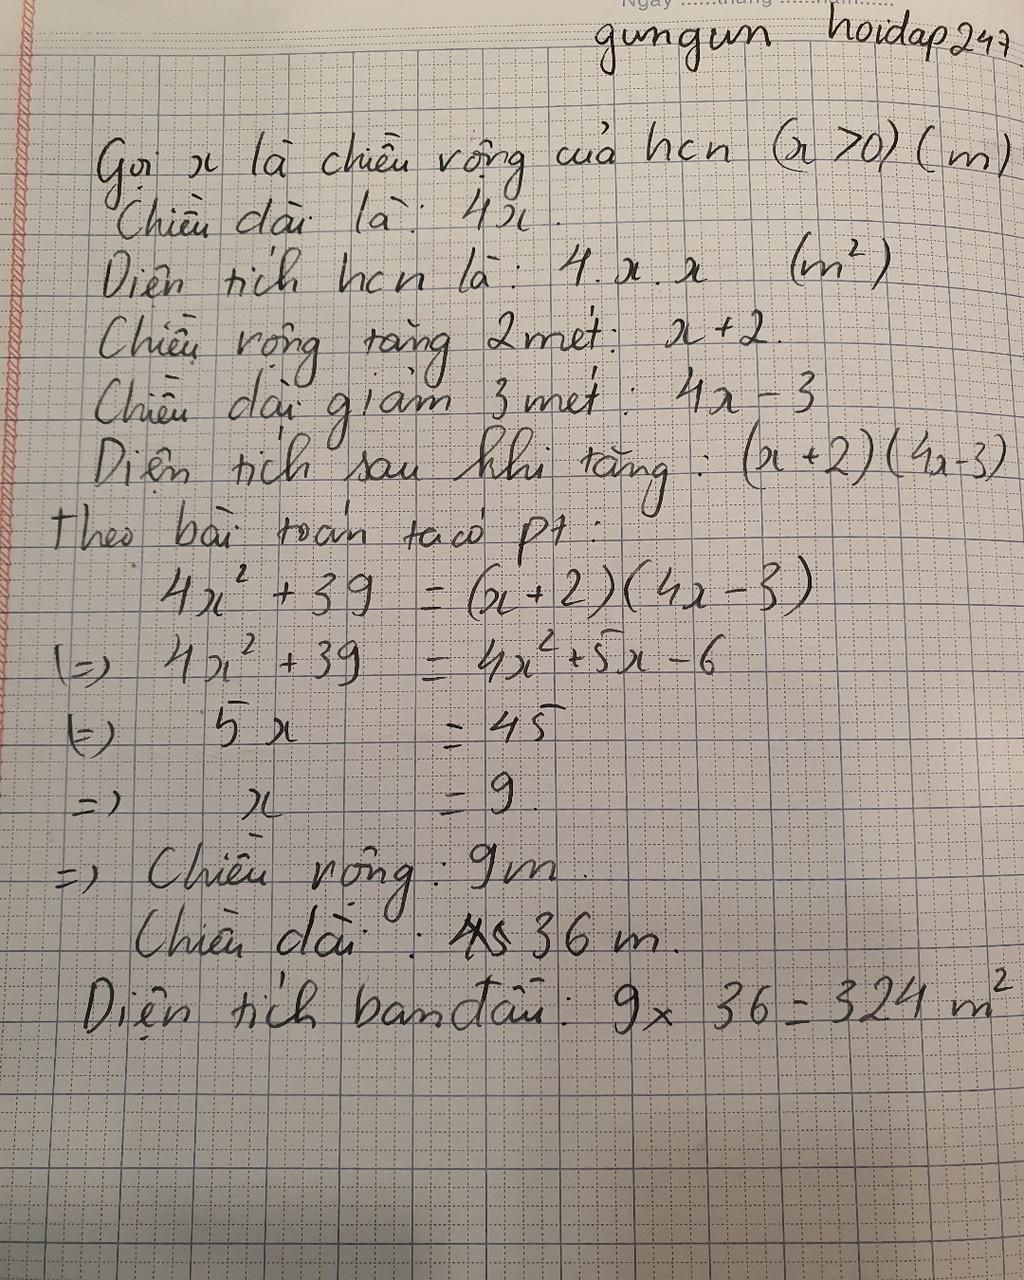 Ngày ......tháng ......năm......
gungun hoidap247
Gọi x là chiều rộng của hcn (x >0) (m)
Chiều dài là: 4x.
Diện tích hcn là: 4.x.x (m²)
Chiều rộng tăng 2 mét: x+2.
Chiều dài giảm 3 mét: 4x-3
Diện tích sau khi tăng: (x+2)(4x-3)
theo bài toán ta có pt:
4x² + 39 = (x+2)(4x-3)
(=) 4x² + 39 = 4x²+5x-6
(=) 5x = 45
=) x = 9.
=) Chiều rộng: 9m.
Chiều dài: 36 m.
Diện tích ban đầu: 9x 36 = 324 m²